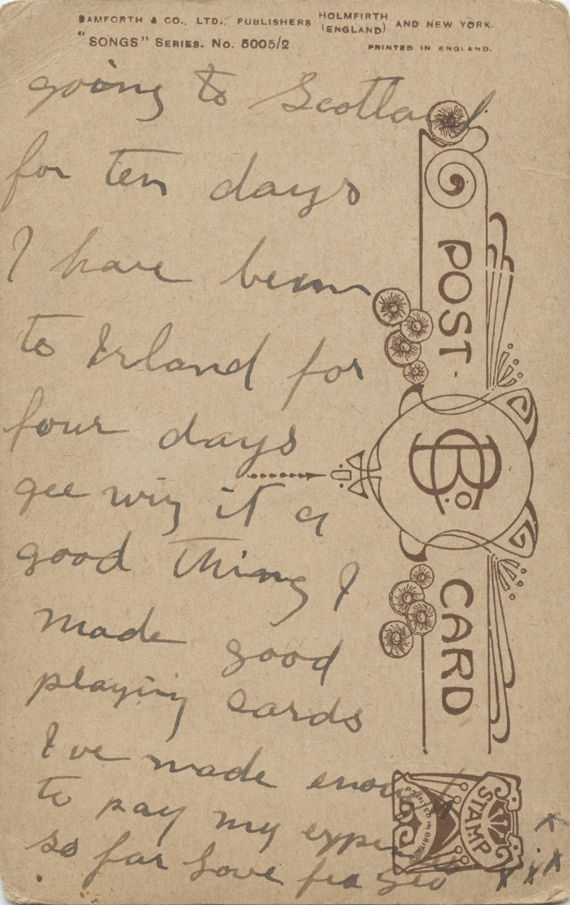 BAMFORTH & CO., LTD., PUBLISHERS HOLMFIRTH (ENGLAND) AND NEW YORK.
"SONGS" SERIES. No. 5005/2
PRINTED IN ENGLAND.
going to Scotland
for ten days
I have been
to Irland for
four days
gee wiz it a
good thing I
made good
playing cards
I've made enough
to pay my
so far love Geo
x
x x x
POST
B Co
CARD
STAMP